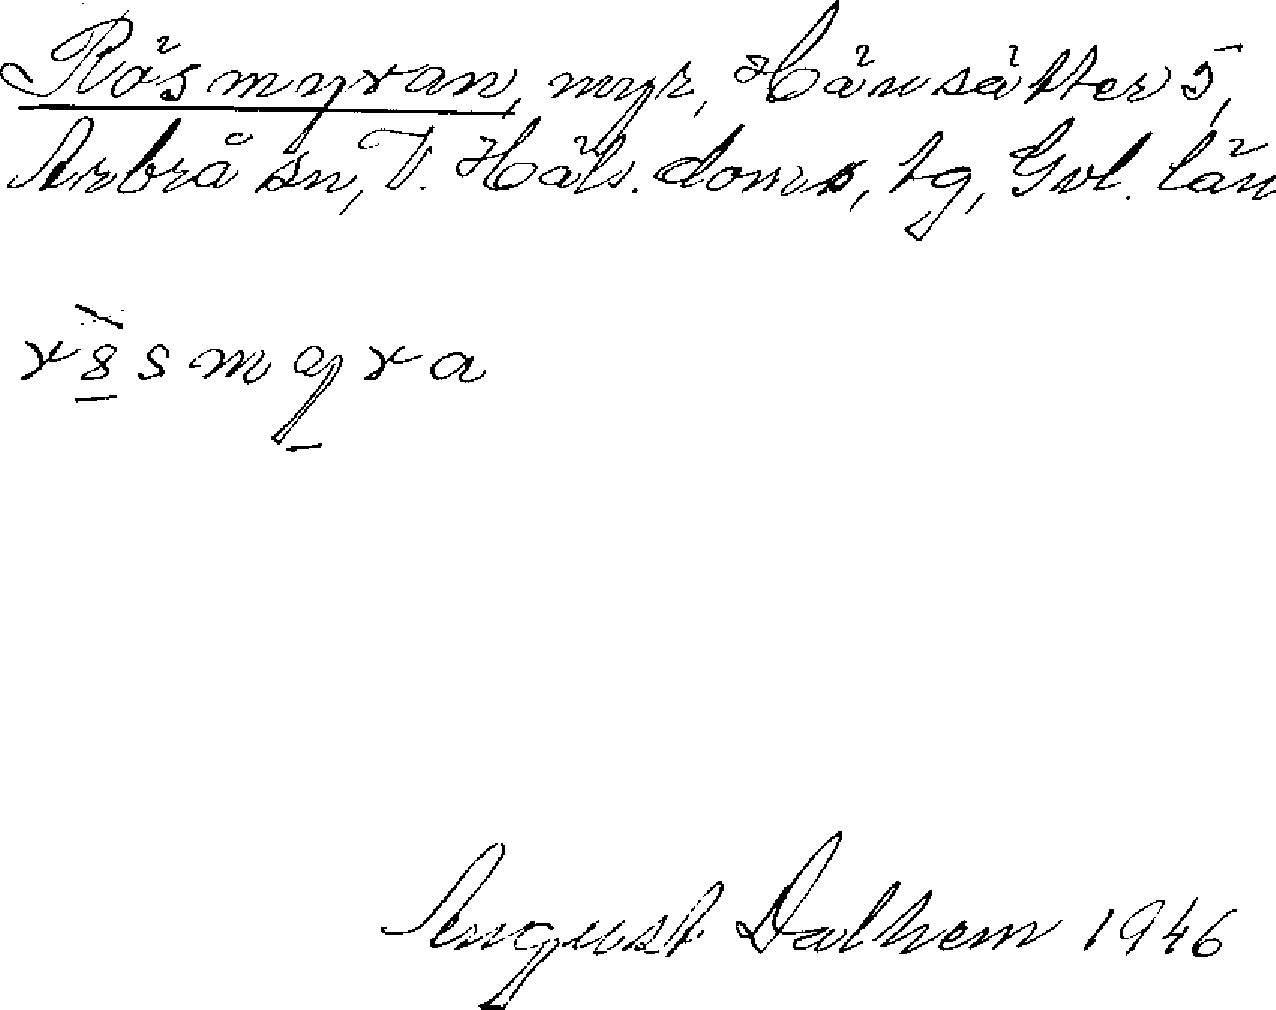 Rösmyran, myr, Hänsätter 5,
Arbrå sn, V. Häls. doms, tg, Gvl. län
r8smyra
August Dalhem 1946